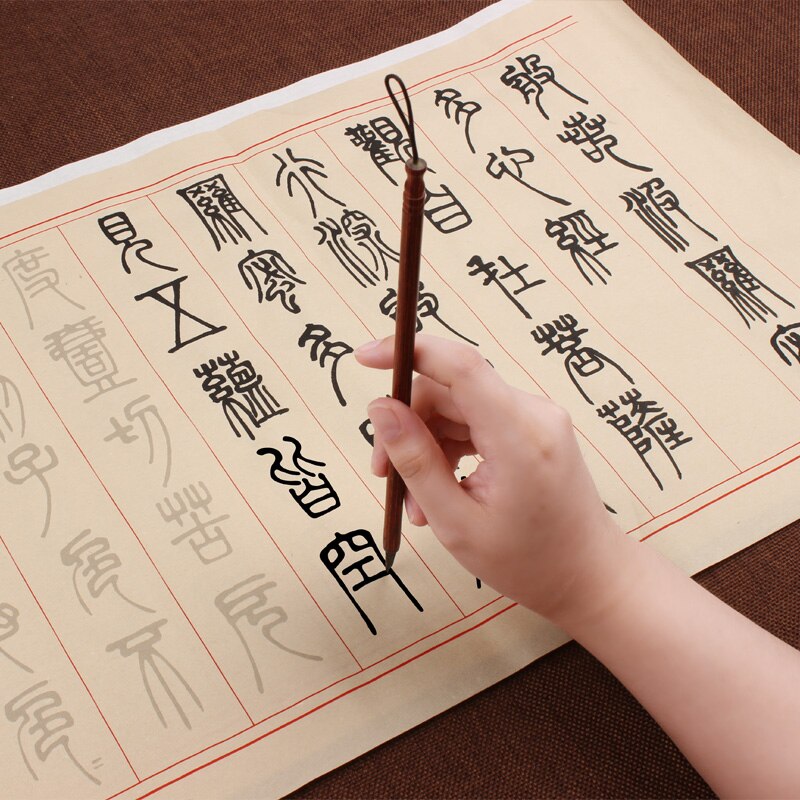 般若波羅蜜
多心經
觀自在菩薩
行深般
羅蜜多
見五蘊皆空
度壹切苦厄
子色不
色=